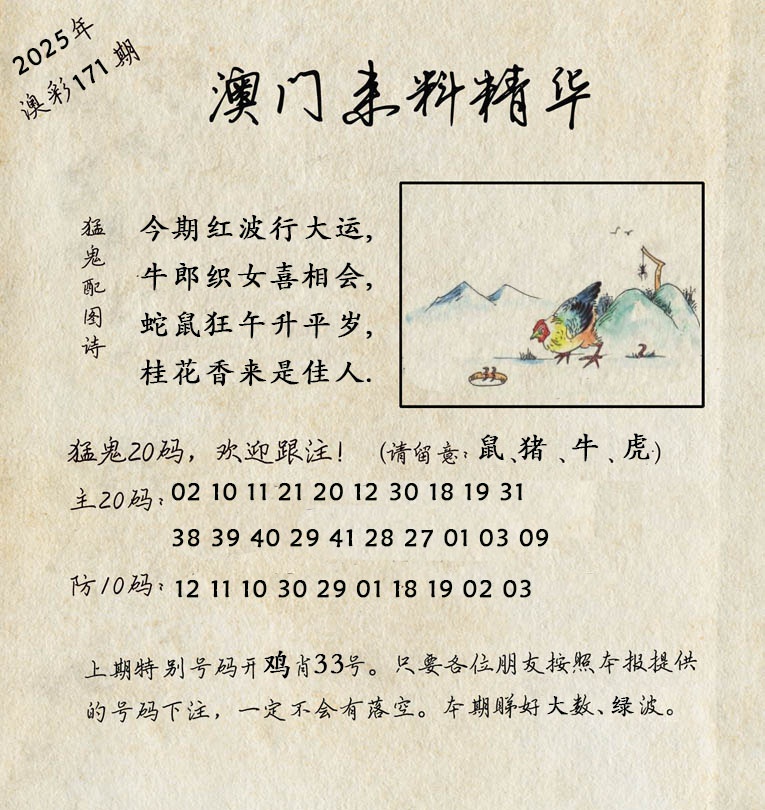 2025年
澳彩171期
澳门来料精华
猛鬼配图诗
今期红波行大运,
牛郎织女喜相会,
蛇鼠狂午升平岁,
桂花香来是佳人.
33
2
猛鬼20码，欢迎跟注！ (请留意：鼠、猪、牛、虎)
主20码：02 10 11 21 20 12 30 18 19 31
38 39 40 29 41 28 27 01 03 09
防10码：12 11 10 30 29 01 18 19 02 03
上期特别号码开鸡肖33号。只要各位朋友按照本报提供
的号码下注，一定不会有落空。本期睇好大数、绿波。